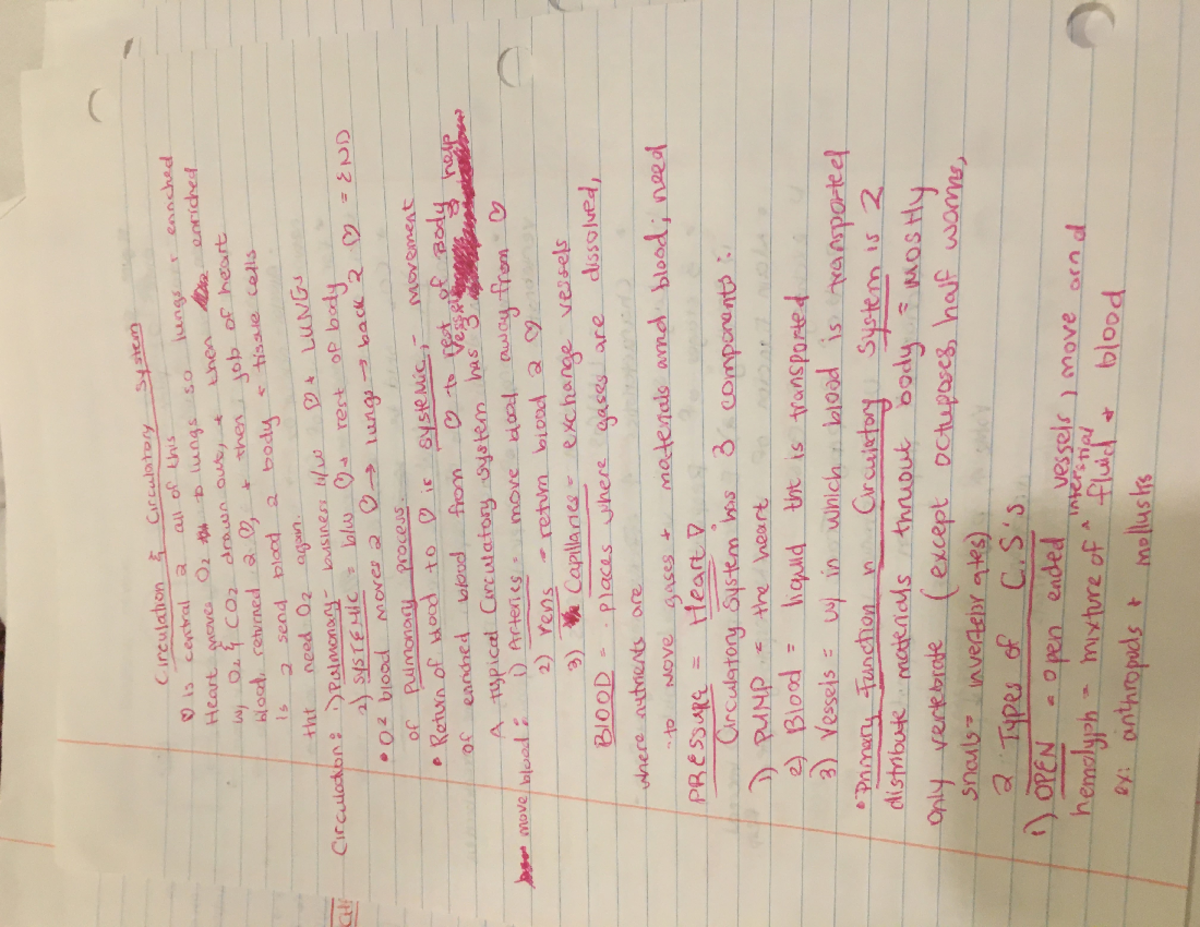 Circulation & Circulatory System
♡ is central 2 all of this
Heart moves O2 to lungs so lungs r enriched
w/ O2 & CO2 drawn out, + then enriched
blood returned 2 ♡, + then job of heart
is 2 send blood 2 body + tissue cells
tht need O2 again.
Circulation: 1) Pulmonary - business b/w ♡ + LUNGS
2) SYSTEMIC = b/w ♡ + rest of body
• O2 blood moves 2 ♡ → lungs → back 2 ♡ = END
of Pulmonary process.
• Return of blood to ♡ is systemic, - movement
of enriched blood from ♡ to rest of Body
A Typical Circulatory system has 3 vessels help
move blood: 1) Arteries = move blood away from ♡
2) Veins - return blood 2 ♡
3) Capillaries = exchange vessels
BLOOD = places where gases are dissolved,
where nutrients are
- to move gases + materials and blood, need
PRESSURE = Heart ♡
Circulatory System has 3 components:
1) PUMP = the heart
2) Blood = liquid tht is transported
3) Vessels = in which blood is transported
• Primary Function n Circulatory System is 2
distribute materials thruout body = MOSTLY
only vertebrate (except octuposes, half worms,
snails = invertebrates)
2 Types of C.S.'s
1) OPEN - open ended vessels, move arnd
hemolyph = mixture of ^ interstitial fluid + blood
ex: anthropods + mollusks
CH